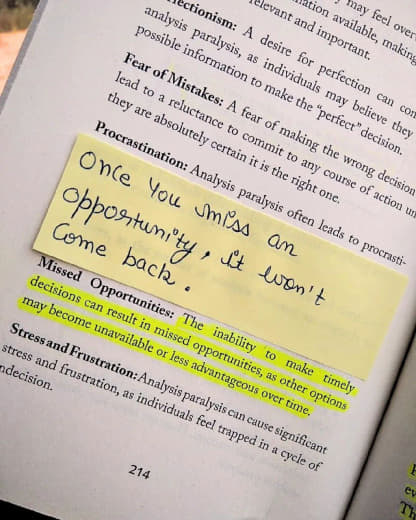 may feel over
ation available, making
relevant and important.
fectionism: A desire for perfection can con
analysis paralysis, as individuals may believe they
possible information to make the "perfect" decision.
Fear of Mistakes: A fear of making the wrong decision
lead to a reluctance to commit to any course of action un
they are absolutely certain it is the right one.
Procrastination: Analysis paralysis often leads to procrasti-
Once You miss an
opportunity, it won't
Come back.
Missed Opportunities: The inability to make timely
decisions can result in missed opportunities, as other options
may become unavailable or less advantageous over time.
Stress and Frustration: Analysis paralysis can cause significant
stress and frustration, as individuals feel trapped in a cycle of
ndecision.
214
ev
Th